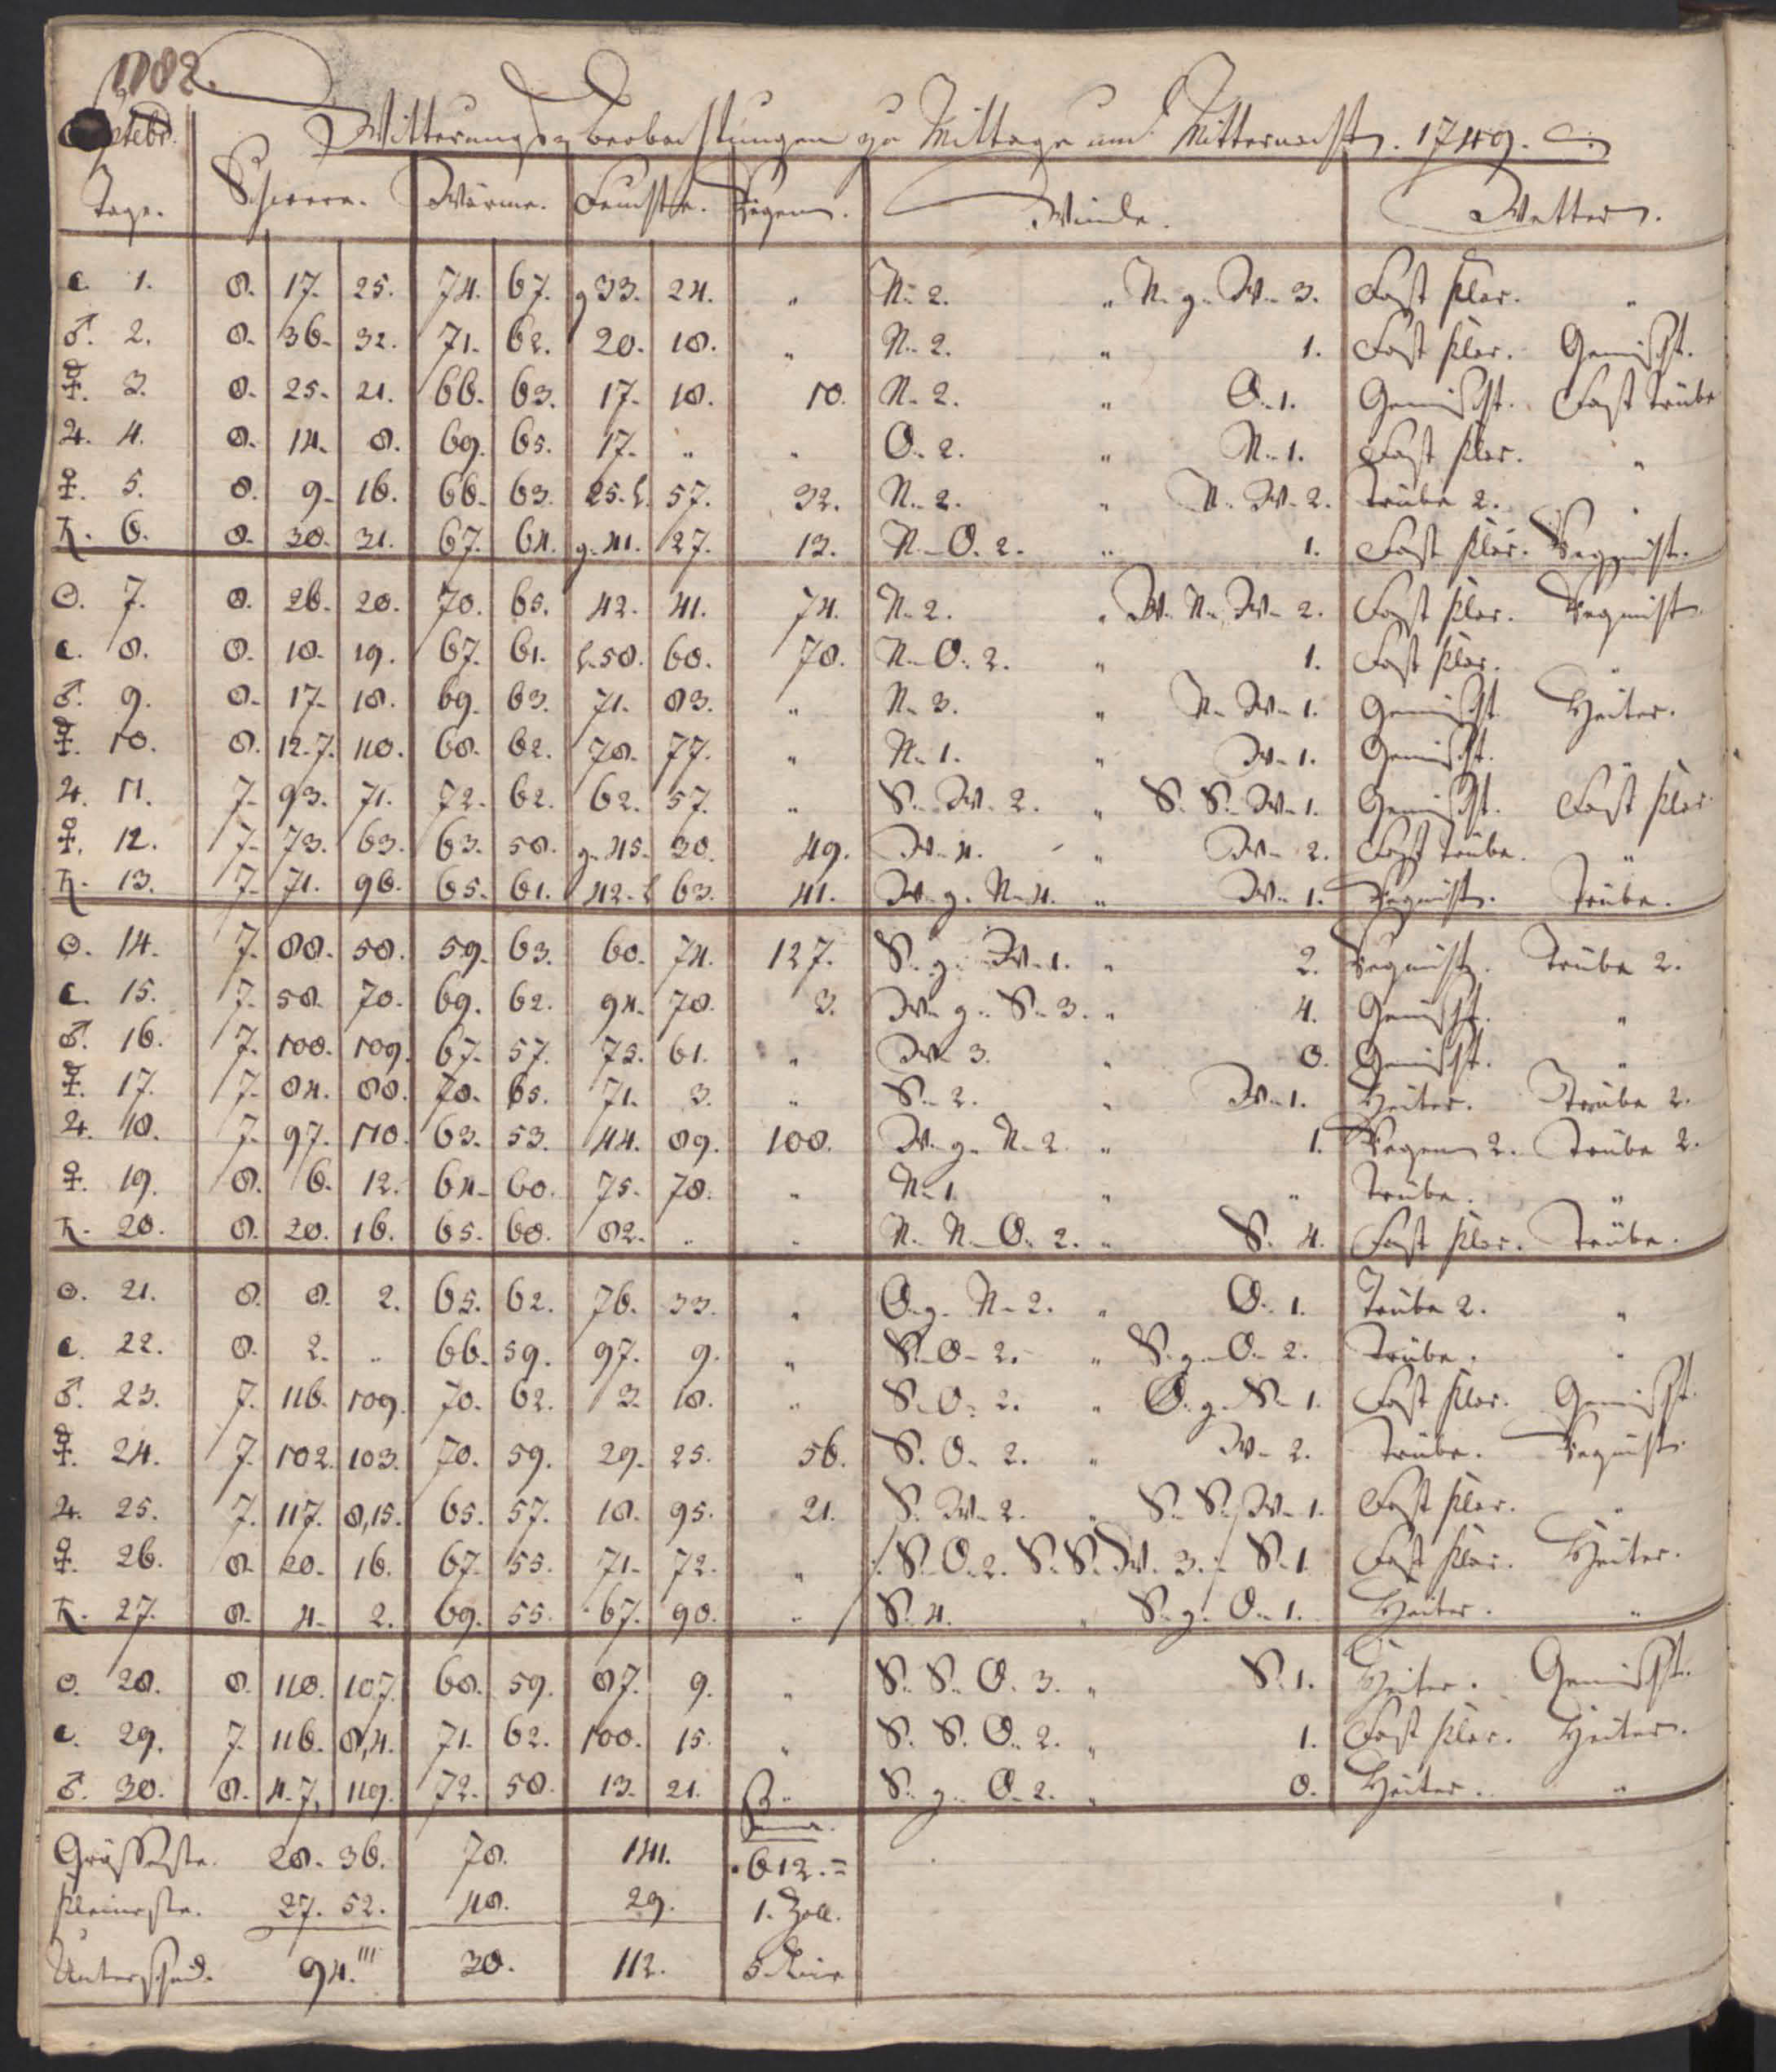 1782.
Septebr. Witterungs-beobachtungen zu Mittage und Mitternacht. 1749.
Tage. Schwere. Wärme. Feuchte. Regen. Winde. Wetter.
☾. 1. 8. 17. 25. 74. 67. g 33. 24. " N. 2. " N. g. W. 3. Fast klar. "
♂. 2. 8. 36. 32. 71. 62. 20. 18. " N. 2. " 1. Fast klar. Gemischt.
☿. 3. 8. 25. 21. 66. 63. 17. 18. 10. N. 2. " O. 1. Gemischt. Fast trübe
♃. 4. 8. 14. 8. 69. 65. 17. " " O. 2. " N. 1. Fast klar. "
♀. 5. 8. 9. 16. 66. 63. 25. l. 57. 32. N. 2. " N. W. 2. Trübe 2. "
♄. 6. 8. 30. 31. 67. 64. g. 41. 27. 13. N. O. 2. " 1. Fast klar. Regnicht.
☉. 7. 8. 26. 20. 70. 65. 42. 41. 74. N. 2. " W. N. W. 2. Fast klar. Regnicht
☾. 8. 8. 18. 19. 67. 61. l. 58. 60. 78. N. O. 2. " 1. Fast klar. "
♂. 9. 8. 17. 18. 69. 63. 71. 83. " N. 3. " N. W. 1. Gemischt. Heiter.
☿. 10. 8. 12. 7. 110. 68. 62. 78. 77. " N. 1. " W. 1. Gemischt. "
♃. 11. 7. 93. 71. 72. 62. 62. 57. " S. W. 2. " S. S. W. 1. Gemischt. Fast klar
♀. 12. 7. 73. 63. 63. 58. g. 45. 30. 49. W. 4. " W. 2. Fast trübe. "
♄. 13. 7. 71. 96. 65. 61. 42. l 63. 41. W. g. N. 4. " W. 1. Regnicht. Trübe.
☉. 14. 7. 88. 58. 59. 63. 60. 74. 127. S. g. W. 1. " 2. Regnicht. Trübe 2.
☾. 15. 7. 58. 70. 69. 62. 94. 78. 3. W. g. S. 3. " 4. Gemischt. "
♂. 16. 7. 108. 109. 67. 57. 75. 61. " W. 3. " 0. Gemischt. "
☿. 17. 7. 84. 88. 78. 65. 71. 3. " S. 2. " W. 1. Heiter. Trübe 2.
♃. 18. 7. 97. 118. 63. 53. 44. 89. 108. W. g. N. 2. " 1. Regen 2. Trübe 2.
♀. 19. 8. 6. 12. 64. 60. 75. 78. " N. 1. " " Trübe. "
♄. 20. 8. 20. 16. 65. 60. 82. " " N. N. O. 2. " S. 4. Fast klar. Trübe.
☉. 21. 8. 8. 2. 65. 62. 76. 33. " O. g. N. 2. " O. 1. Trübe 2. "
☾. 22. 8. 2. " 66. 59. 97. 9. " S. O. 2. " S. g. O. 2. Trübe. "
♂. 23. 7. 116. 109. 70. 62. 3. 18. " S. O. 2. " O. g. S. 1. Fast klar. Gemischt.
☿. 24. 7. 102. 103. 70. 59. 29. 25. 56. S. O. 2. " W. 2. Trübe. Regnicht.
♃. 25. 7. 117. 8,15. 65. 57. 18. 95. 21. S. W. 2. " S. S. W. 1. Fast klar. "
♀. 26. 8. 20. 16. 67. 55. 71. 72. " /: S. O. 2. S. S. W. 3. :/ S. 1. Fast klar. Heiter.
♄. 27. 8. 4. 2. 69. 55. 67. 90. " S. 4. " S. g. O. 1. Heiter. "
☉. 28. 8. 110. 107. 68. 59. 87. 9. " S. S. O. 3. " S. 1. Heiter. Gemischt.
☾. 29. 7. 116. 8,4. 71. 62. 100. 15. " S. S. O. 2. " 1. Fast klar. Heiter.
♂. 30. 8. 4. 7. 119. 72. 58. 13. 21. " S. g. O. 2. " 0. Heiter. "
Summ.
Grösseste. 28. 36. 78. 141. 612. =
Kleineste. 27. 52. 48. 29. 1. Zoll.
Unterscheid. 94.''' 30. 112. 5 Linie